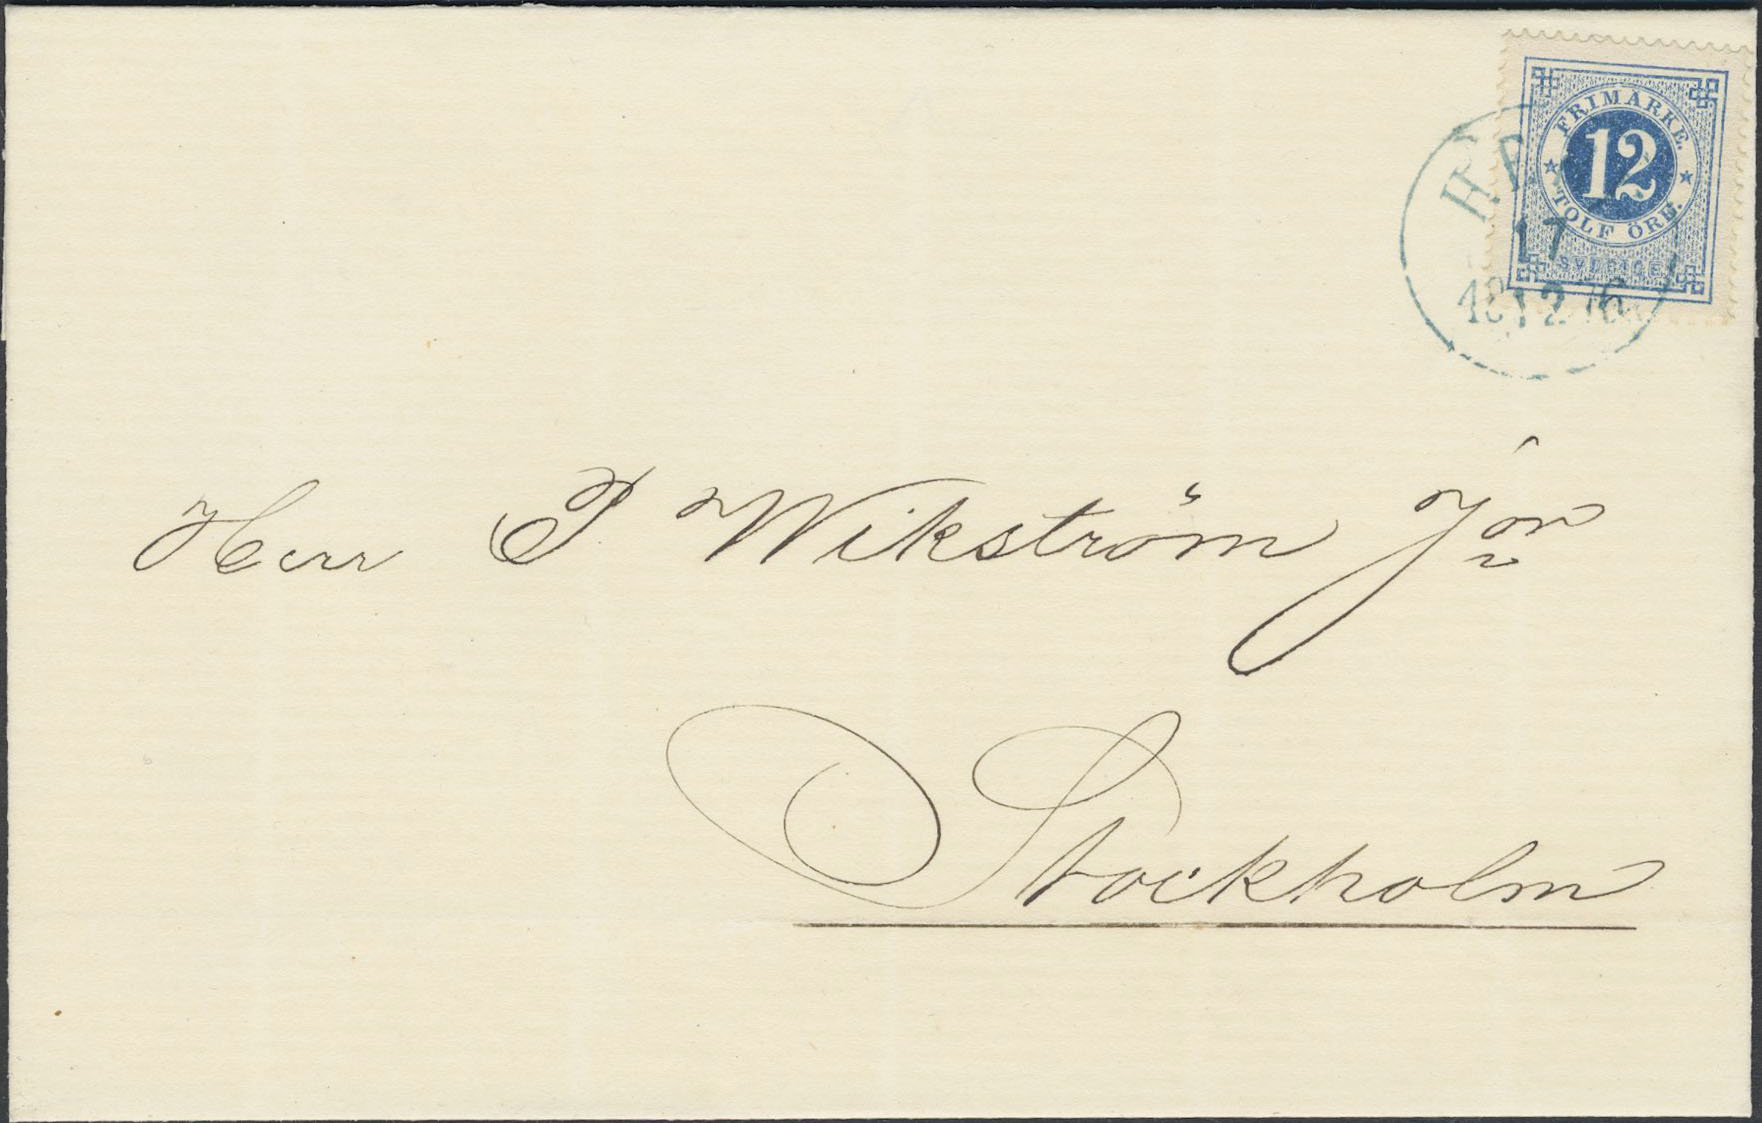 FRIMÄRKE.
12
TOLF ÖRE.
SVERIGE
17
12
Herr P Wikström Jor
Stockholm